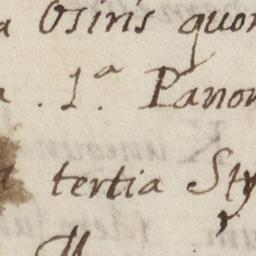 a Osiris quon
a. 1.ª Panon
tertia Sty